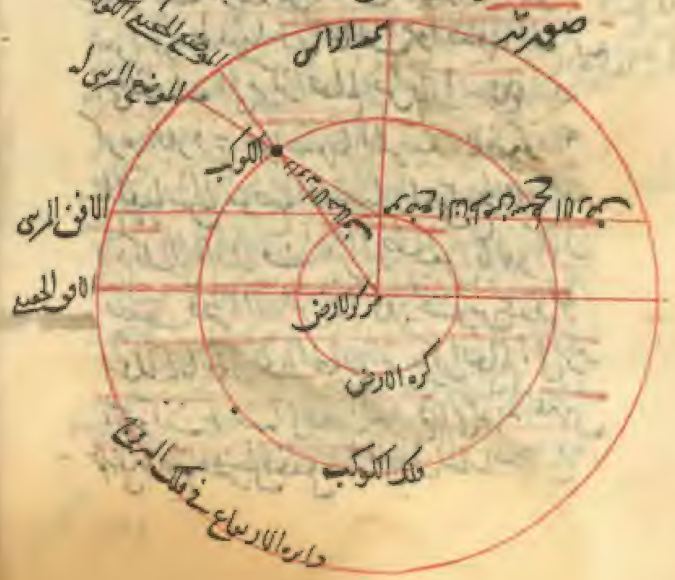 صورته
سمت الراس
الموضع الحقيقى الكوكب
الموضع المرئى له
الكوكب
زاوية اختلاف
الافق المرئى
الافق الحقيقى
مركز الارض
كره الارض
فلك الكوكب
دايره الارتفاع فى فلك البروج